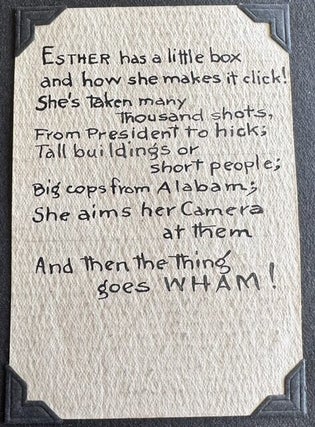 ESTHER has a little box
and how she makes it click!
She's taken many
thousand shots,
From President to hick;
Tall buildings or
short people;
Big cops from Alabam;
She aims her Camera
at them
And then the thing
goes WHAM!